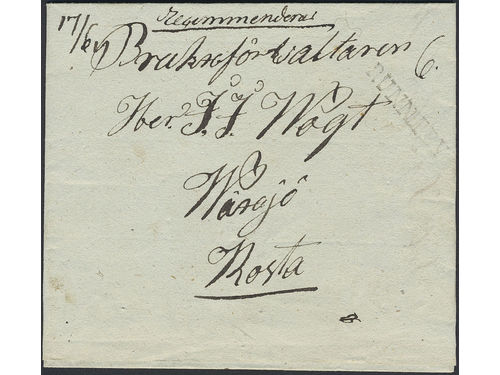 Recommenderas
17/6
Bruksförvaltaren 6.
Her. J. J. Wogt
Wäxsjö
Kosta